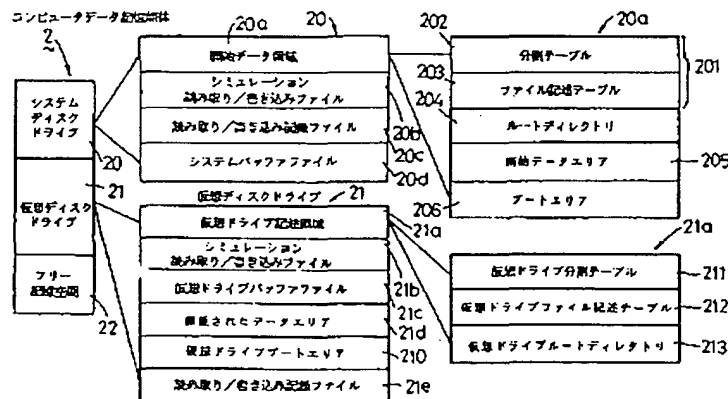 コンピュータデータ記憶媒体
2
システム
ディスク
ドライブ
20
21
仮想ディスク
ドライブ
フリー
記憶空間
22
20a
20
開始データ領域
シミュレーション
読み取り/書き込みファイル
20b
読み取り/書き込み記録ファイル
20c
システムバッファファイル
20d
仮想ディスクドライブ
21
仮想ドライブ記述領域
21a
シミュレーション
読み取り/書き込みファイル
21b
仮想ドライブバッファファイル
21c
されたデータエリア
21d
仮想ドライブブートエリア
210
読み取り/書き込み記録ファイル
21e
20a
202
分割テーブル
203
ファイル記述テーブル
201
204
ルートディレクトリ
開始データエリア
205
206
ブートエリア
21a
仮想ドライブ分割テーブル
211
仮想ドライブファイル記述テーブル
212
仮想ドライブルートディレクトリ
213